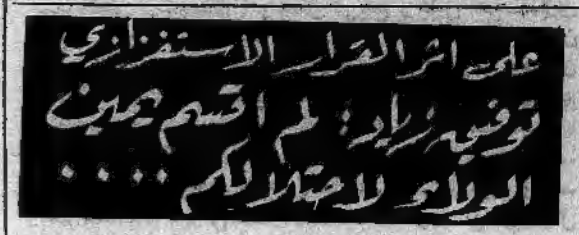 على اثر القرار الاستفزازي
توفيق زياد : لم اقسم يمين
الولاء لاحتلالكم ....